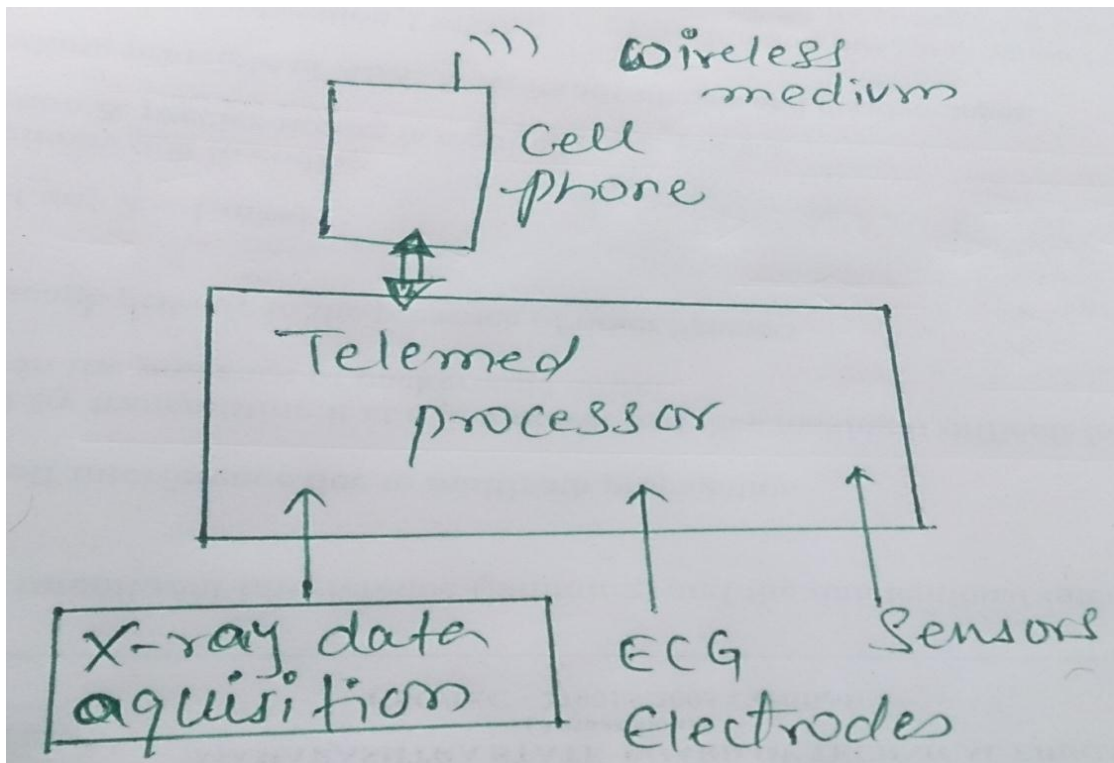 Wireless
medium
Cell
phone
Telemed
processor
X-ray data
aquisition
ECG
Electrodes
Sensors